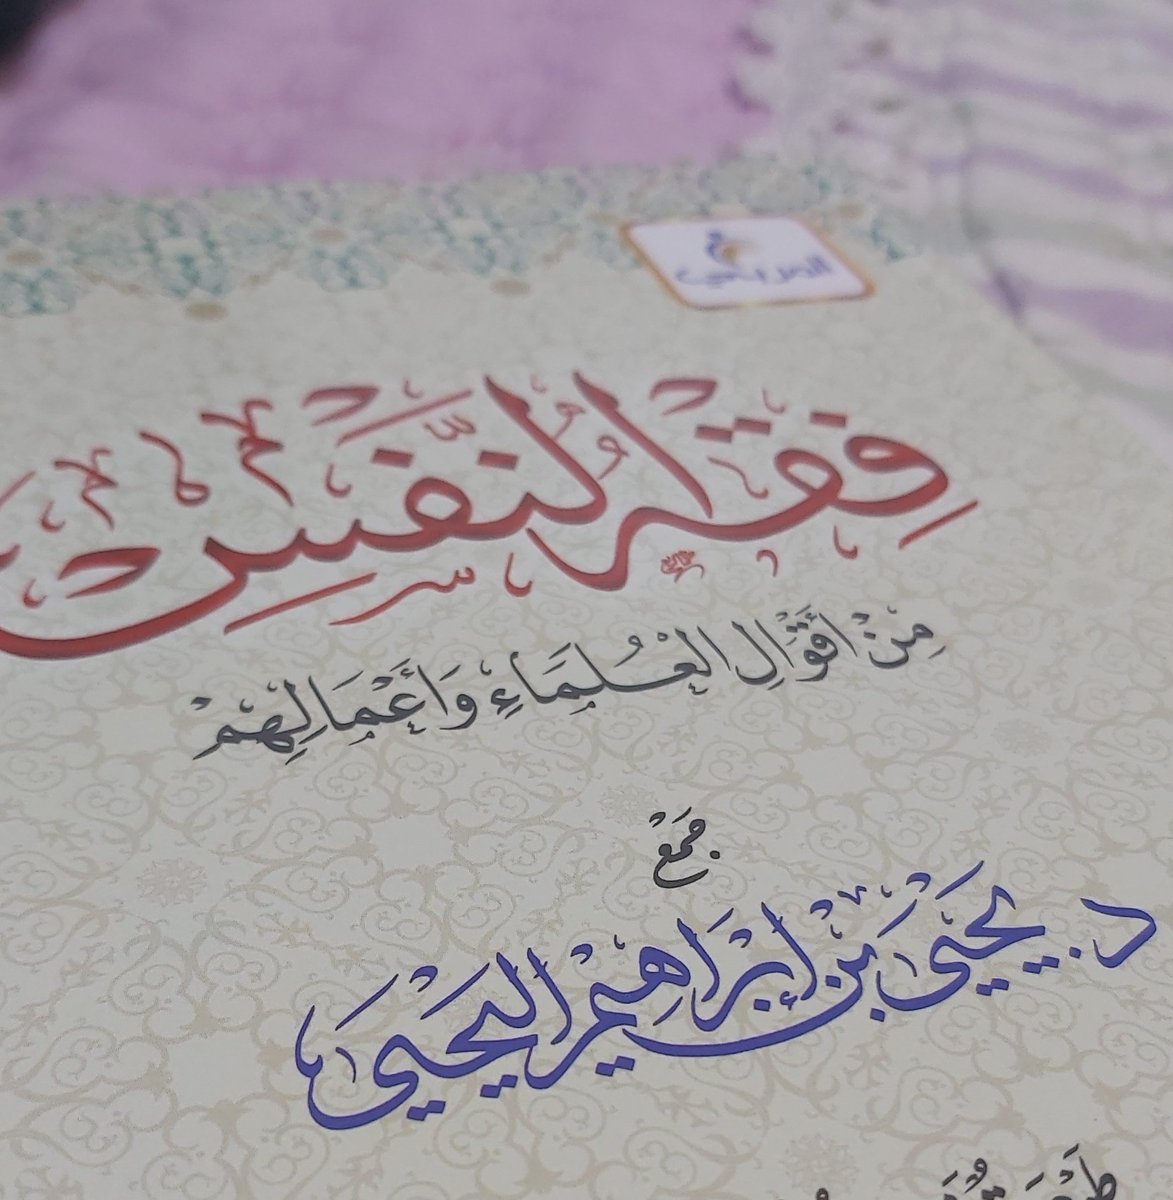 فِقْهُ النَّفْسِ
مِنْ أَقْوَالِ الْعُلَمَاءِ وَأَعْمَالِهِمْ
جَمْعُ
د. يَحْيَى بْنِ إِبْرَاهِيمَ الْيَحْيَى